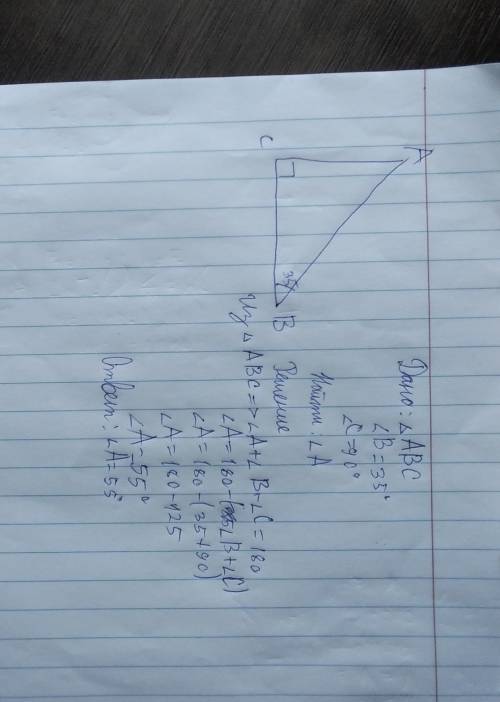 A
C
35°
B
Дано: △ABC
∠B=35°
∠C=90°
Найти: ∠A
Решение
Из △ABC=>∠A+∠B+∠C=180
∠A=180-(∠B+∠C)
∠A=180-(35+90)
∠A=180-125
∠A=55°
Ответ: ∠A=55°